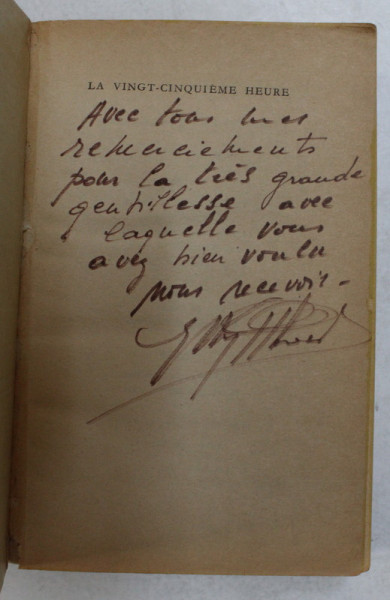 LA VINGT-CINQUIÈME HEURE
Avec tous mes
remerciements
pour la très grande
gentillesse avec
laquelle vous
avez bien voulu
nous recevoir -